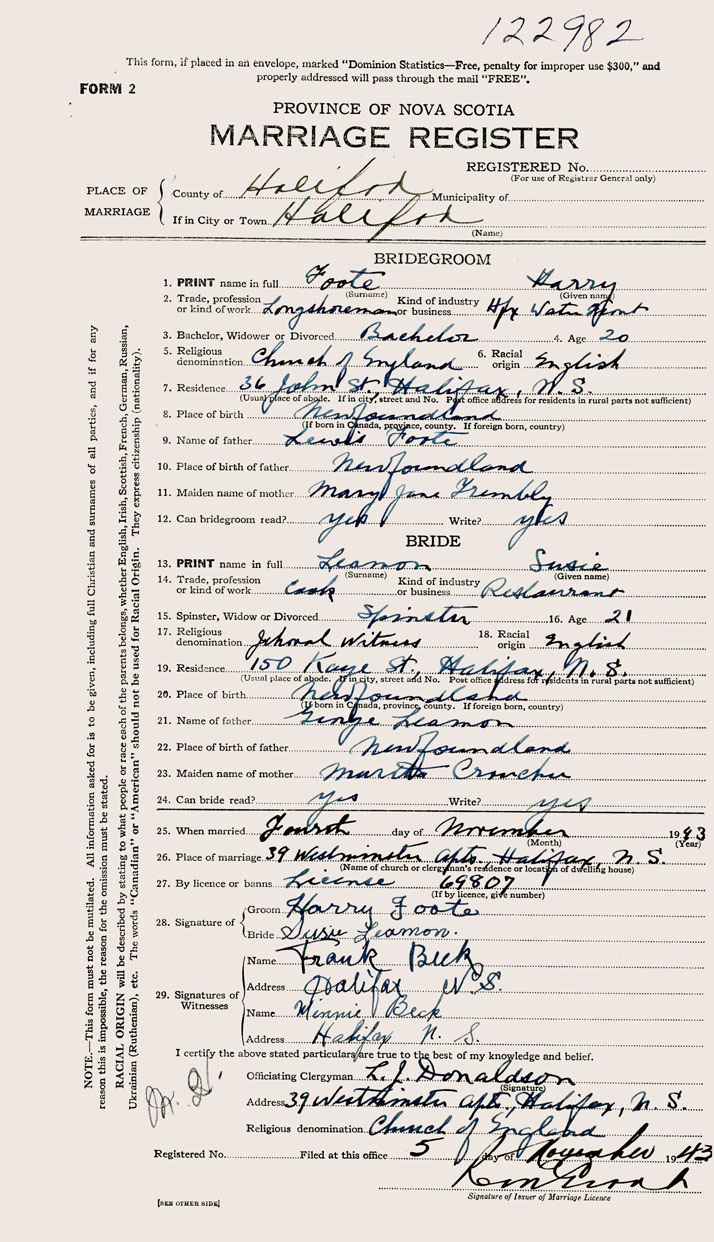 122982
This form, if placed in an envelope, marked "Dominion Statistics—Free, penalty for improper use $300," and
properly addressed will pass through the mail "FREE".
FORM 2
PROVINCE OF NOVA SCOTIA
MARRIAGE REGISTER
REGISTERED No.
(For use of Registrar General only)
PLACE OF MARRIAGE
County of Halifax Municipality of
If in City or Town Halifax
(Name)
BRIDEGROOM
1. PRINT name in full Foote Harry
(Surname) (Given name)
2. Trade, profession or kind of work Longshoreman Kind of industry or business Hfx Water Front
3. Bachelor, Widower or Divorced Bachelor 4. Age 20
5. Religious denomination Church of England 6. Racial origin English
7. Residence 36 John St, Halifax, N.S.
(Usual place of abode. If in city, street and No. Post office address for residents in rural parts not sufficient)
8. Place of birth Newfoundland
(If born in Canada, province, county. If foreign born, country)
9. Name of father Lewis Foote
10. Place of birth of father Newfoundland
11. Maiden name of mother Mary Jane Trembly
12. Can bridegroom read? yes Write? yes
BRIDE
13. PRINT name in full Leamon Susie
(Surname) (Given name)
14. Trade, profession or kind of work Cook Kind of industry or business Restaurant
15. Spinster, Widow or Divorced Spinster 16. Age 21
17. Religious denomination Jehoval Witness 18. Racial origin English
19. Residence 150 Kaye St, Halifax, N.S.
(Usual place of abode. If in city, street and No. Post office address for residents in rural parts not sufficient)
20. Place of birth Newfoundland
(If born in Canada, province, county. If foreign born, country)
21. Name of father George Leamon
22. Place of birth of father Newfoundland
23. Maiden name of mother Martha Croucher
24. Can bride read? yes Write? yes
25. When married Fourth day of November 1943
(Month) (Year)
26. Place of marriage 39 Westminster Apts, Halifax, N.S.
(Name of church or clergyman's residence or location of dwelling house)
27. By licence or banns License 69807
(If by licence, give number)
28. Signature of
Groom Harry Foote
Bride Susie Leamon.
29. Signatures of Witnesses
Name Frank Beck
Address Halifax N.S.
Name Minnie Beck
Address Halifax N.S.
I certify the above stated particulars are true to the best of my knowledge and belief.
Officiating Clergyman L.J. Donaldson
(Signature)
Address 39 Westminster Apts, Halifax, N.S.
Religious denomination Church of England
Registered No. Filed at this office 5 day of November 1943
Signature of Issuer of Marriage Licence
[SEE OTHER SIDE]
NOTE.—This form must not be mutilated. All information asked for is to be given, including full Christian and surnames of all parties, and if for any
reason this is impossible, the reason for the omission must be stated.
RACIAL ORIGIN will be described by stating to what people or race each of the parents belongs, whether English, Irish, Scottish, French, German, Russian,
Ukrainian (Ruthenian), etc. The words "Canadian" or "American" should not be used for Racial Origin. They express citizenship (nationality).